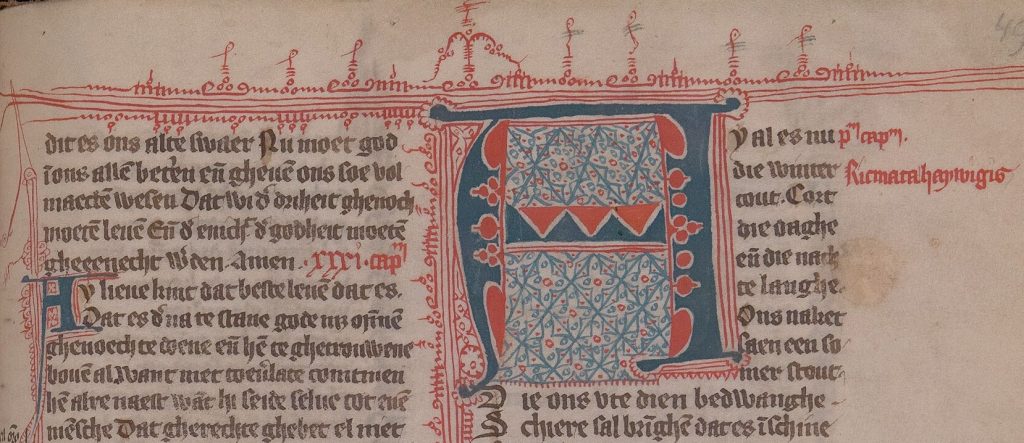 49
dit es ons alte swaer Nu moet god
īons allē betrē eñ gheuē ons soe vol
maectē wesen Dat wi d' driheit ghenoch
moetē leuē Eñ d' enich' d' godheit moetē
gheeenecht w'den. Amen. xxxi. capm
Ay lieue kint dat beste leuē dat es.
Dat es d' na te stane gode
ghenoech te doene eñ hē te ghetrouwene
bouē al. Want met comt men
hē alre naest wāt hi seide selue tot enē
mēsche Dat gherechte ghebet el niet
Ay al es nu pm capm.
die winter Ricmata haywigis
cout. Cort
die daghe
eñ die nach
te langhe.
Ons naket
saen een so
mer stout.
Die ons vte dien bedwanghe
Schiere sal brīghē dat es ī schine